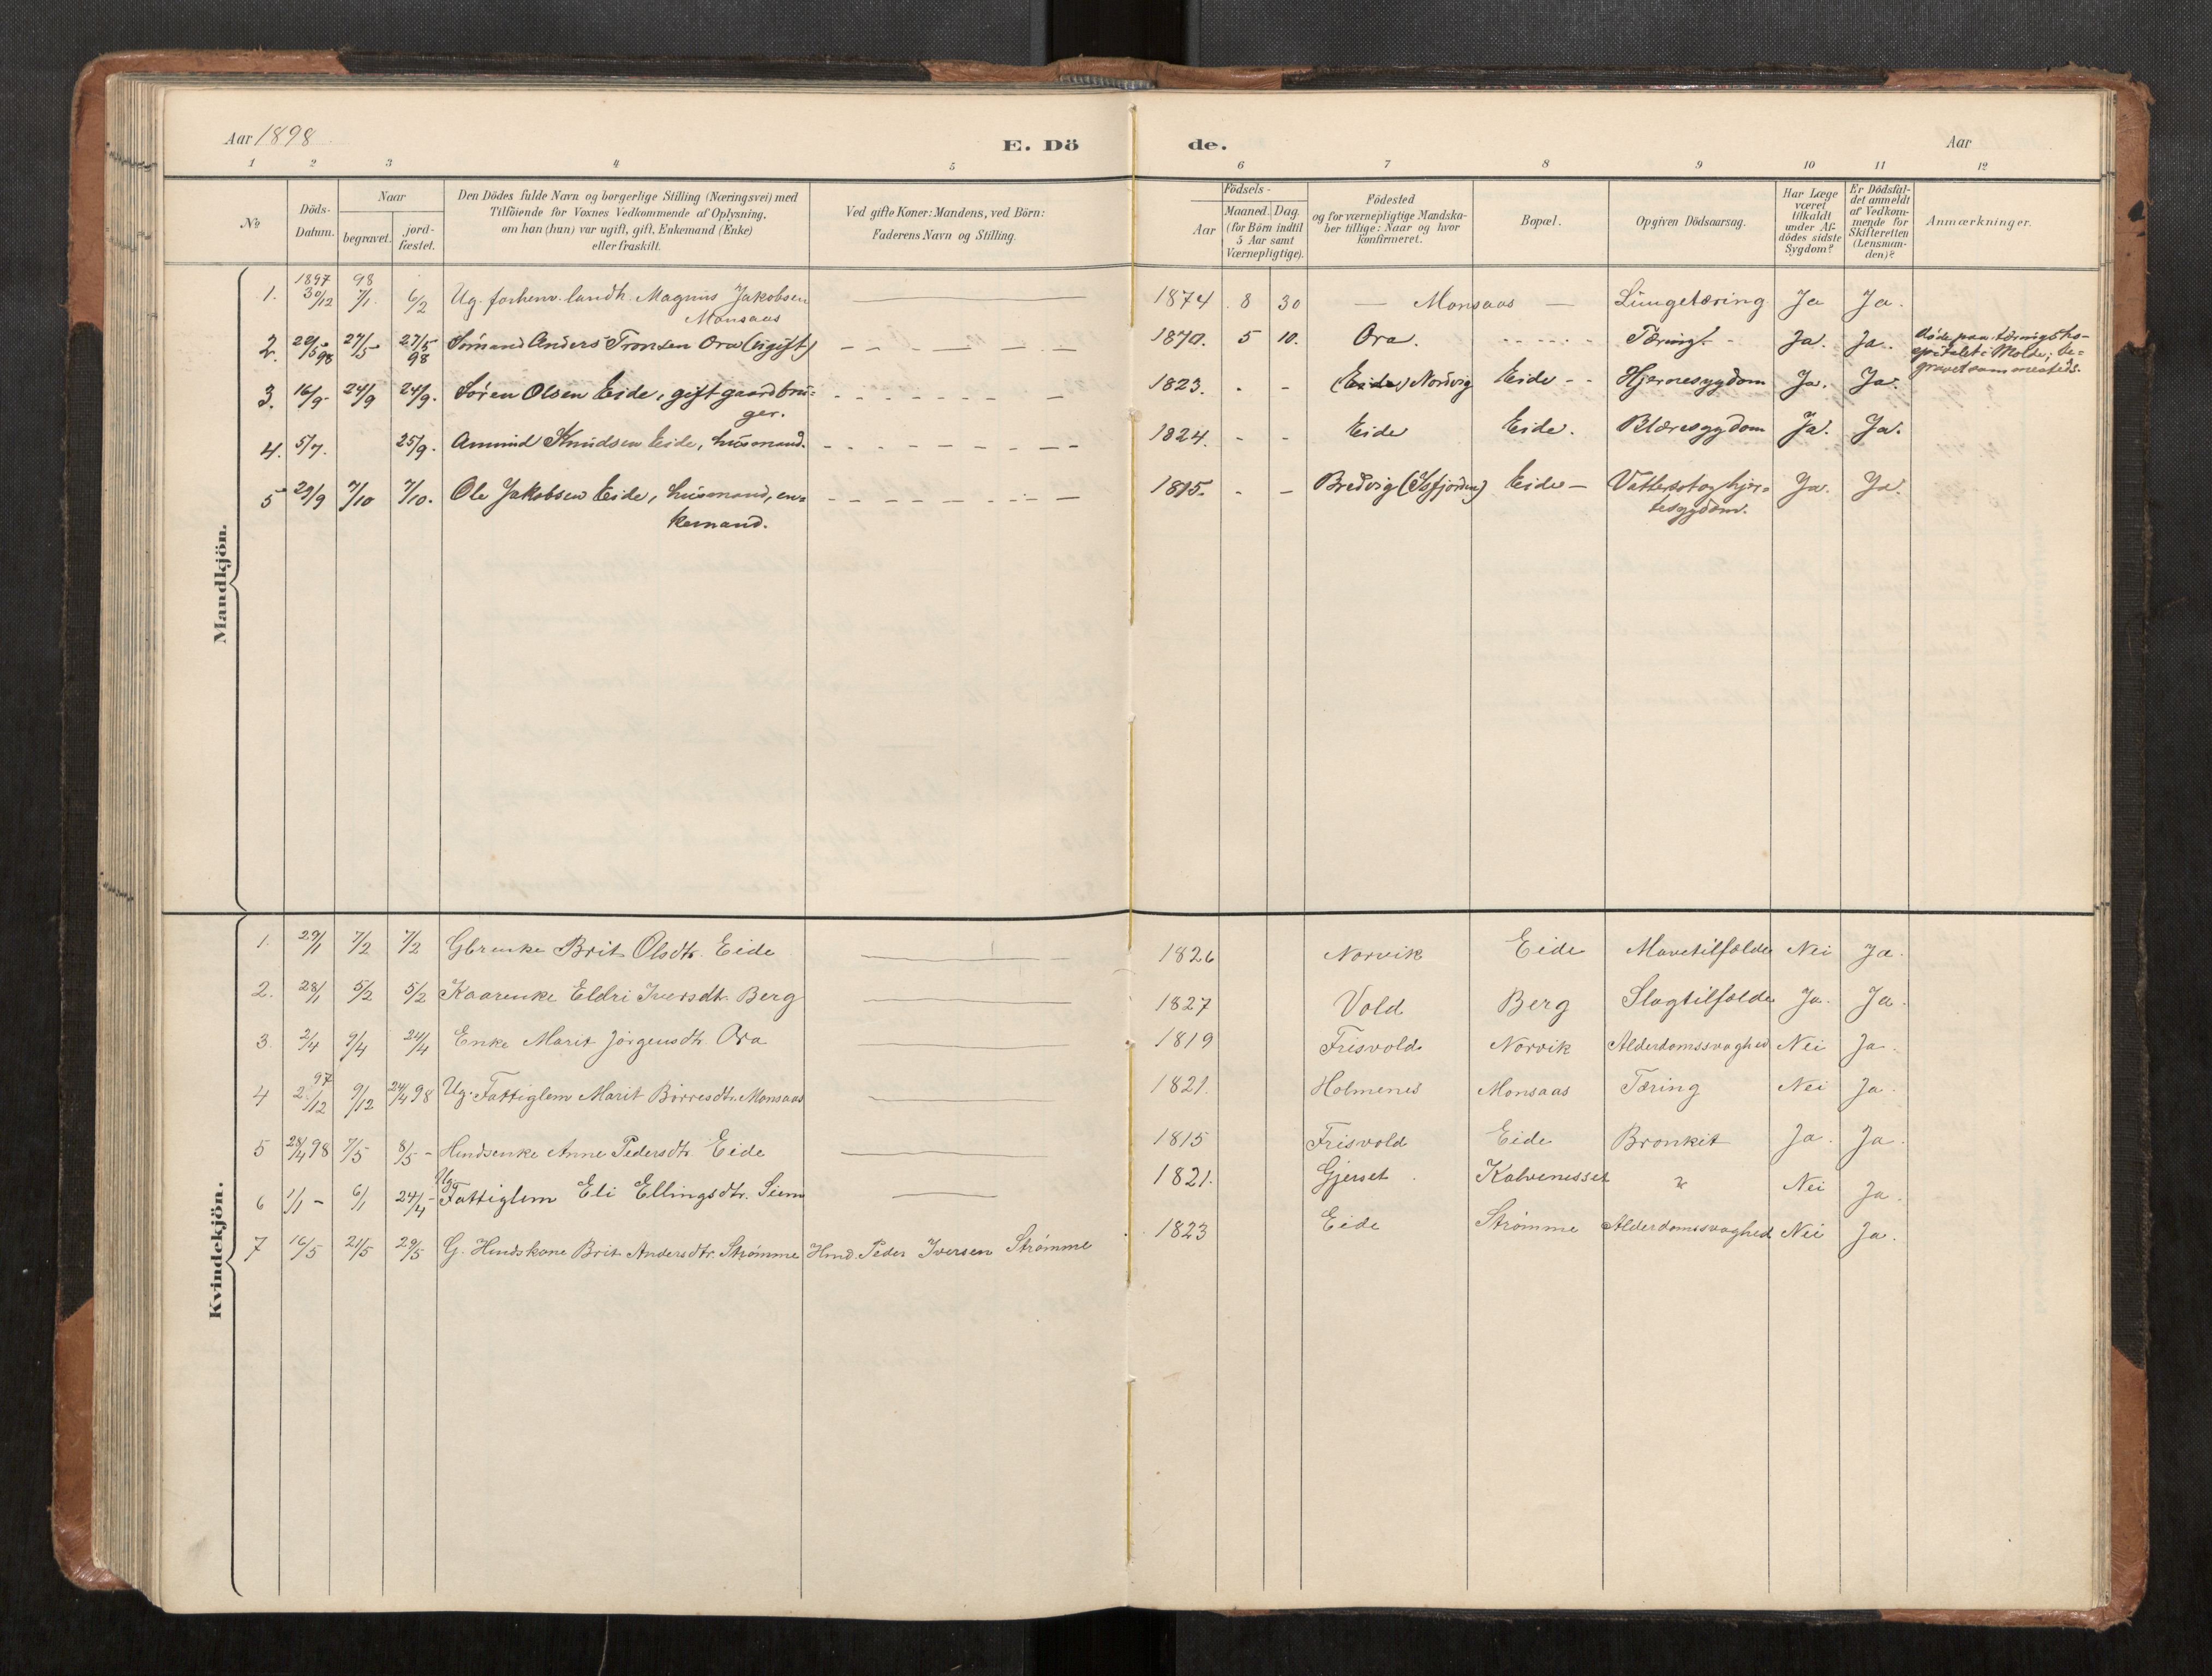 Aar 1898 E. Dö de. Aar
1 2 3 4 5 6 7 8 9 10 11 12
No
Döds-
Datum.
Naar
begravet.
jord-
fæstet.
Den Dödes fulde Navn og borgerlige Stilling (Næringsvei) med
Tilföiende for Voxnes Vedkommende af Oplysning,
om han (hun) var ugift, gift, Enkemand (Enke)
eller fraskilt.
Ved gifte Koner: Mandens, ved Börn:
Faderens Navn og Stilling.
Födsels-
Aar
Maaned. Dag.
(for Börn indtil
5 Aar samt
Værnepligtige).
Födested
og for værnepligtige Mandska-
ber tillige: Naar og hvor
konfirmeret.
Bopæl.
Opgiven Dödsaarsag.
Har Læge
været
tilkaldt
under Af-
dödes sidste
Sygdom?
Er Dödsfal-
det anmeldt
af Vedkom-
mende for
Skifteretten
(Lensman-
den)?
Anmærkninger.
Mandkjön.
1897 98
1. 30/12 7/1 6/2 Ug. forhenv. landh. Magnus Jakobsen — 1874 8 30 — Monsaas — Lungetæring Ja Ja.
Monsaas
2. 20/5 98 27/5 27/5 98 Sømand Anders Tronsen Ora (ugift) 1870. 5 10. Ora. Tæring. Ja. Ja. døde paa tæringsho-
spitalet i Molde; be-
gravet sammesteds.
3. 16/9 24/9 24/9. Søren Olsen Eide, gift gaardbru- 1823. - - (Eide) Nordvig Eide - - Hjernesygdom Ja. Ja.
ger.
4. 5/7. 25/9. Amund Knudsen Eide, husmand. 1824. - - Eide Eide. Blæresygdom Ja. Ja.
5 29/9 7/10 7/10. Ole Jakobsen Eide, husmand, en- 1815. - - Bredvig (Isfjorden) Eide - Vattersot og hjer- Ja. Ja.
kemand. tesygdom.
Kvindekjön.
1. 29/1 7/2 7/2 Gbrenke Brit Olsdtr. Eide — 1826 Norvik Eide Mavetilfælde Nei Ja.
2. 28/1 5/2 5/2 Kaarenke Eldri Iversdt. Berg — 1827 Vold Berg Slagtilfælde Ja. Ja.
3. 2/4 9/4 24/4 Enke Marit Jørgensdtr. Ora — 1819 Frisvold Norvik Alderdomssvaghed Nei Ja.
4 2/12 97 9/12 24/4 98 Ug. Fattiglem Marit Børresdtr. Monsaas — 1821. Holmenes Monsaas Tæring Nei Ja.
5 28/4 98 7/5 8/5 - Hmdsenke Anne Pedersdtr. Eide — 1815 Frisvold Eide Bronkit Ja. Ja.
6 1/1 - 6/1 24/4 - Ug. Fattiglem Eli Ellingsdtr. Siem — 1821. Gjerset Kalvenesset " Nei Ja.
7 16/5 21/5 29/5 G. Hmdskone Brit Andersdtr. Strømme Hmd. Peder Iversen Strømme 1823 Eide Strømme Alderdomssvaghed Nei Ja.